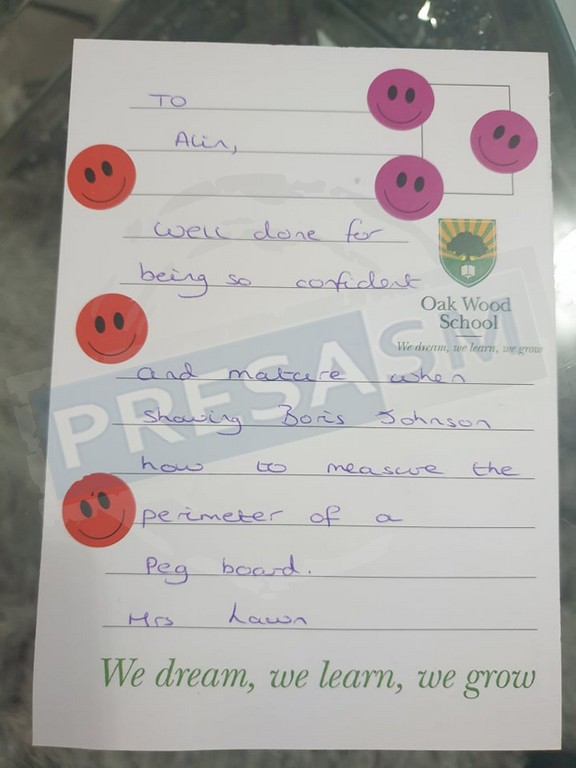 TO
Alin,
Well done for
being so confident
Oak Wood
School
We dream, we learn, we grow
and mature when
showing Boris Johnson
how to measure the
perimeter of a
Peg board.
Mrs Lawn
We dream, we learn, we grow
PRESASM